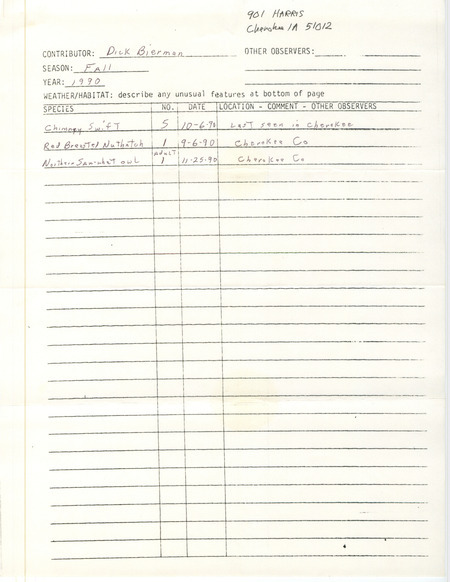 901 HARRIS
Cherokee IA 51012
CONTRIBUTOR: Dick Bierman OTHER OBSERVERS:
SEASON: Fall
YEAR: 1990
WEATHER/HABITAT: describe any unusual features at bottom of page
SPECIES NO. DATE LOCATION - COMMENT - OTHER OBSERVERS
Chimney Swift 5 10-6-90 Last seen in Cherokee
Red Breasted Nuthatch 1 9-6-90 Cherokee Co
Northern Saw-whet owl ADULT 1 11-25-90 Cherokee Co